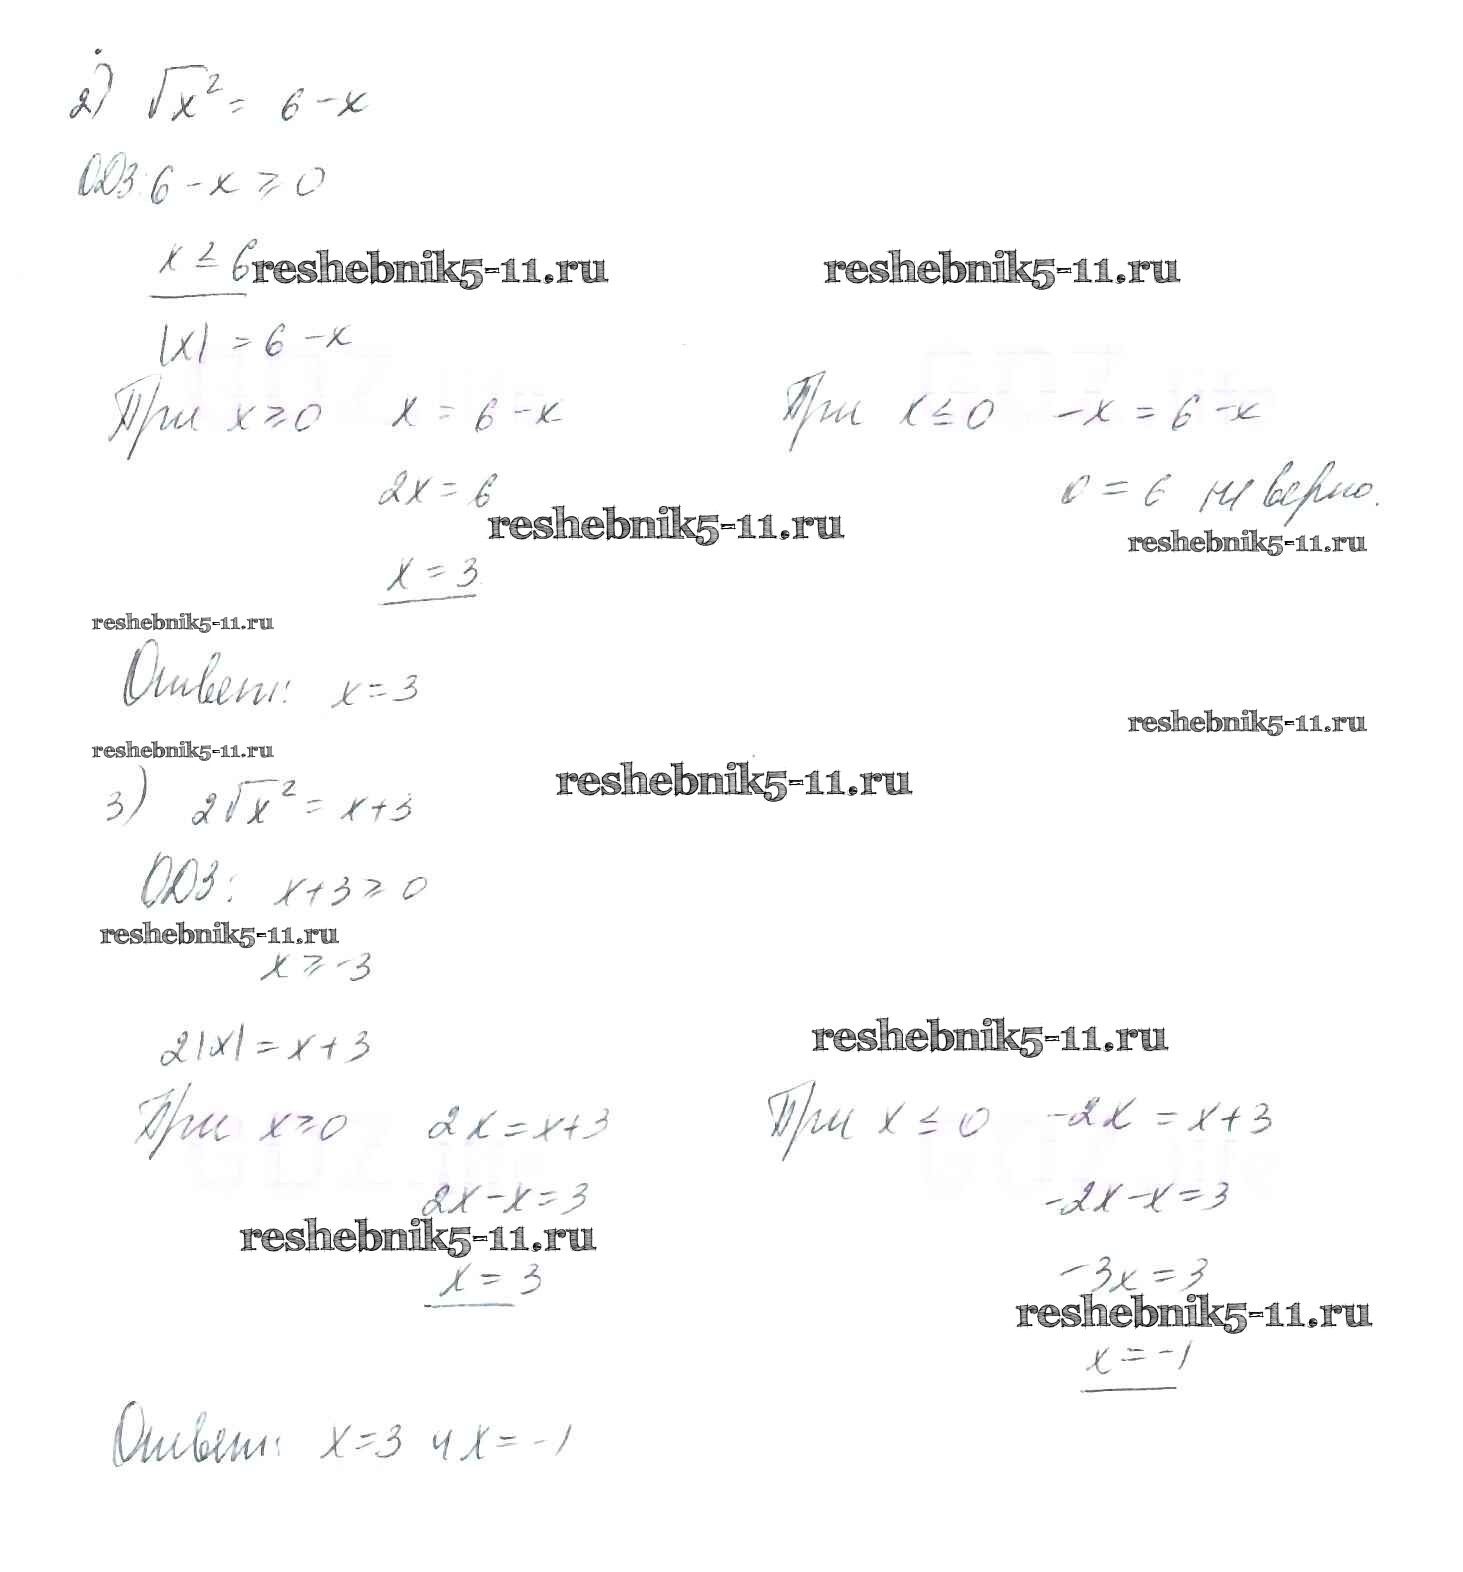 2) √x² = 6 - x
ОДЗ: 6 - x ≥ 0
x ≤ 6 reshebnik5-11.ru reshebnik5-11.ru
|x| = 6 - x
При x ≥ 0 x = 6 - x При x ≤ 0 -x = 6 - x
2x = 6 0 = 6 не верно.
reshebnik5-11.ru reshebnik5-11.ru
x = 3
reshebnik5-11.ru
Ответ: x = 3
reshebnik5-11.ru
reshebnik5-11.ru reshebnik5-11.ru
3) 2√x² = x + 3
ОДЗ: x + 3 ≥ 0
reshebnik5-11.ru
x ≥ -3
reshebnik5-11.ru
2|x| = x + 3
При x ≥ 0 2x = x + 3 При x ≤ 0 -2x = x + 3
2x - x = 3 -2x - x = 3
reshebnik5-11.ru
x = 3 -3x = 3
reshebnik5-11.ru
x = -1
Ответ: x = 3 и x = -1